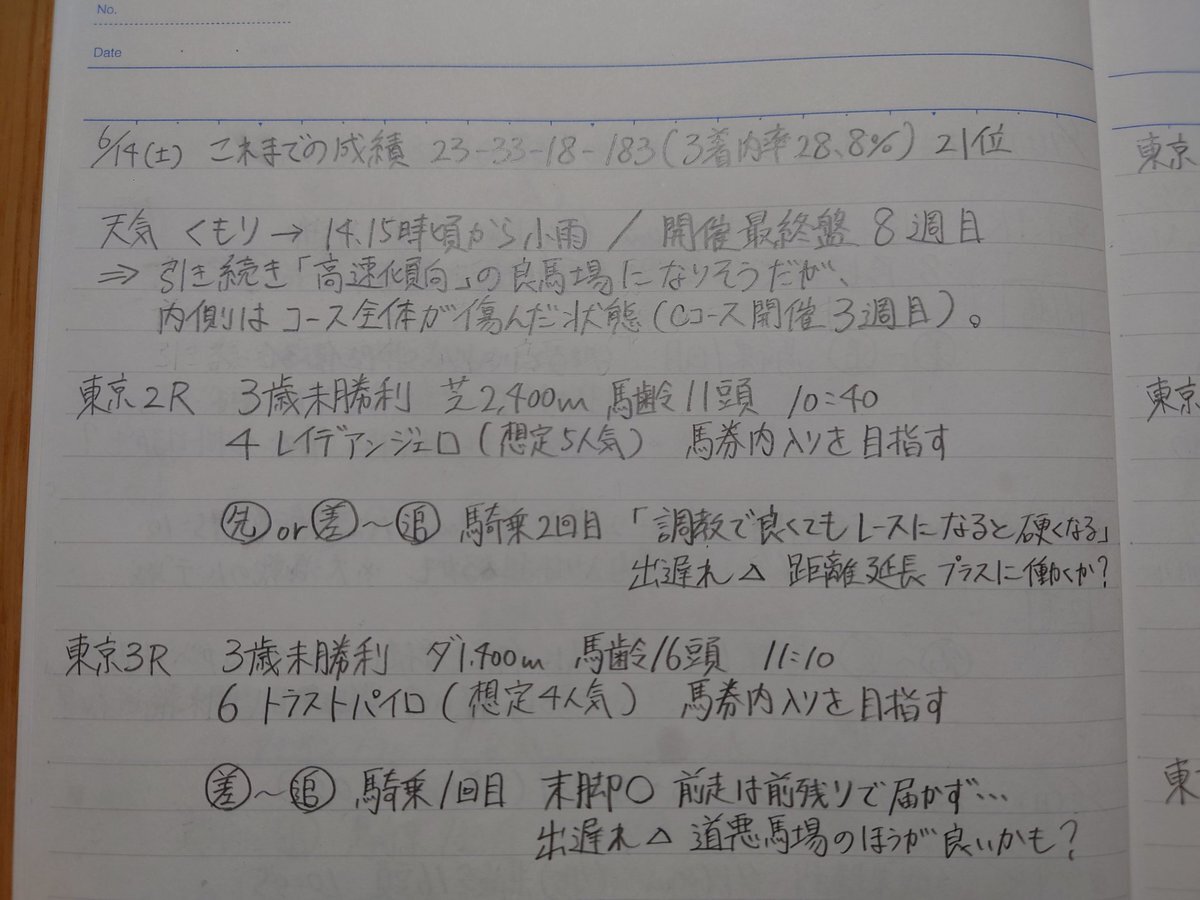 No.
Date
6/14(土) これまでの成績 23-33-18-183(3着内率28.8%) 21位
天気 くもり→14.15時頃から小雨 / 開催最終盤 8週目
⇒ 引き続き「高速傾向」の良馬場になりそうだが、
内側はコース全体が傷んだ状態(Cコース開催3週目)。
東京2R 3歳未勝利 芝2,400m 馬齢11頭 10:40
4 レイデアンジェロ(想定5人気) 馬券内入りを目指す
先or差〜追 騎乗2回目 「調教で良くてもレースになると硬くなる」
出遅れ△ 距離延長プラスに働くか?
東京3R 3歳未勝利 ダ1,400m 馬齢16頭 11:10
6 トラストパイロ(想定4人気) 馬券内入りを目指す
差〜追 騎乗1回目 末脚○ 前走は前残りで届かず…
出遅れ△ 道悪馬場のほうが良いかも?
東京
東京
東